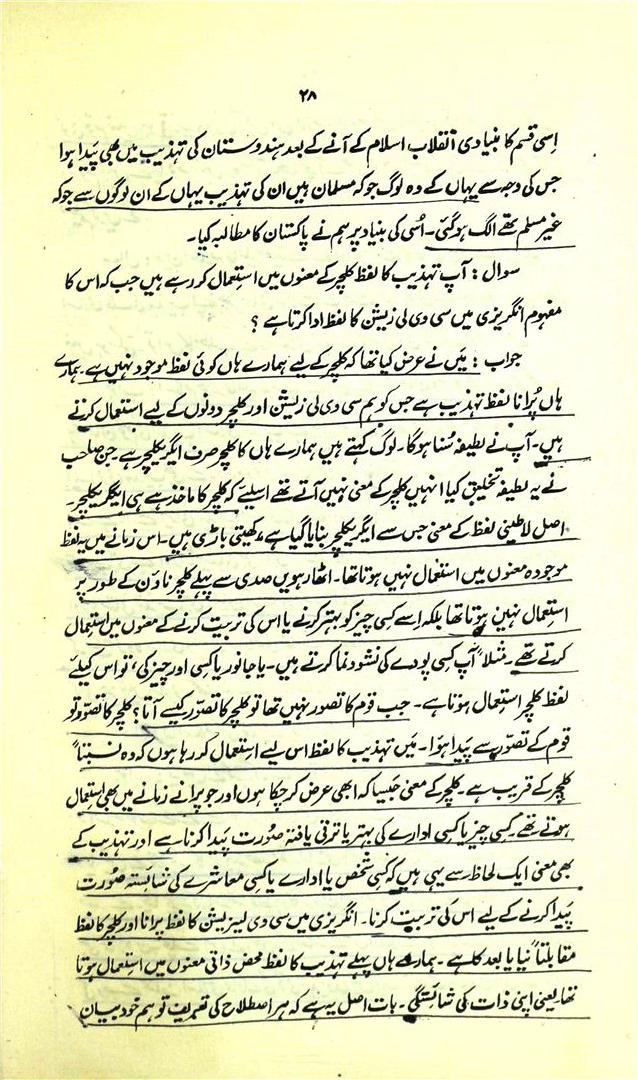 ۲۸
اِسی قسم کا بنیادی انقلاب اسلام کے آنے کے بعد ہندوستان کی تہذیب میں بھی پَیدا ہوا
جس کی وجہ سے یہاں کے وہ لوگ جو کہ مسلمان ہیں ان کی تہذیب یہاں کے ان لوگوں سے جو کہ
غیر مسلم تھے الگ ہو گئی۔ اُسی کی بنیاد پر ہم نے پاکستان کا مطالبہ کیا۔
سوال : آپ تہذیب کا لفظ کلچر کے معنوں میں استعمال کر رہے ہیں جب کہ اس کا
مفہوم انگریزی میں سی وی لی زیشن کا لفظ ادا کرتا ہے ؟
جواب : مَیں نے عرض کیا تھا کہ کلچر کے لیے ہمارے ہاں کوئی لفظ موجود نہیں ہے۔ ہمارے
ہاں پُرانا لفظ تہذیب ہے جس کو ہم سی وی لی زیشن اور کلچر دونوں کے لیے استعمال کرتے
ہیں۔ آپ نے لطیفہ سُنا ہوگا۔ لوگ کہتے ہیں ہمارے ہاں کا کلچر صرف ایگریکلچر ہے۔ جن صاحب
نے یہ لطیفہ تخلیق کیا انہیں کلچر کے معنی نہیں آتے تھے اسلیے کہ کلچر کا ماخذ ہے ہی ایگریکلچر۔
اصل لاطینی لفظ کے معنی جس سے ایگریکلچر بنایا گیا ہے، کھیتی باڑی ہیں۔ اس زمانے میں یہ لفظ
موجودہ معنوں میں استعمال نہیں ہوتا تھا۔ اٹھارہویں صدی سے پہلے کلچر ناؤن کے طور پر
استعمال نہین ہوتا تھا بلکہ اِسے کسی چیز کو بہتر کرنے یا اس کی تربیت کرنے کے معنوں میں استعمال
کرتے تھے۔ مثلاً آپ کسی پودے کی نشوونما کرتے ہیں۔ یا جانور یا کسی اور چیز کی، تو اس کیلئے
لفظ کلچر استعمال ہوتا ہے۔ جب قوم کا تصور نہیں تھا تو کلچر کا تصوّر کیسے آتا؟ کلچر کا تصوّر تو
قوم کے تصوّر سے پَیدا ہوا۔ مَیں تہذیب کا لفظ اس لیے استعمال کر رہا ہوں کہ وہ نسبتاً
کلچر کے قریب ہے۔ کلچر کے معنی جَیسا کہ ابھی عرض کر چکا ہوں اور جو پرانے زمانے میں بھی استعمال
ہوتے تھے۔ کِسی چیز یا کسی ادارے کی بہتر یا ترقی یافتہ صُورت پَیدا کرنا ہے اور تہذیب کے
بھی معنی ایک لحاظ سے یہی ہیں کہ کسی شخص یا ادارے یا کسی معاشرے کی شائستہ صُورت
پَیدا کرنے کے لیے اس کی تربیت کرنا۔ انگریزی میں سی وی لیزیشن کا لفظ پرانا اور کلچر کا لفظ
مقابلتاً نیا یا بعد کا ہے۔ ہمارے ہاں پہلے تہذیب کا لفظ محض ذاتی معنوں میں استعمال ہوتا
تھا یعنی اپنی ذات کی شائستگی۔ بات اصل یہ ہے کہ ہر اصطلاح کی تعریف تو ہم خود بیان